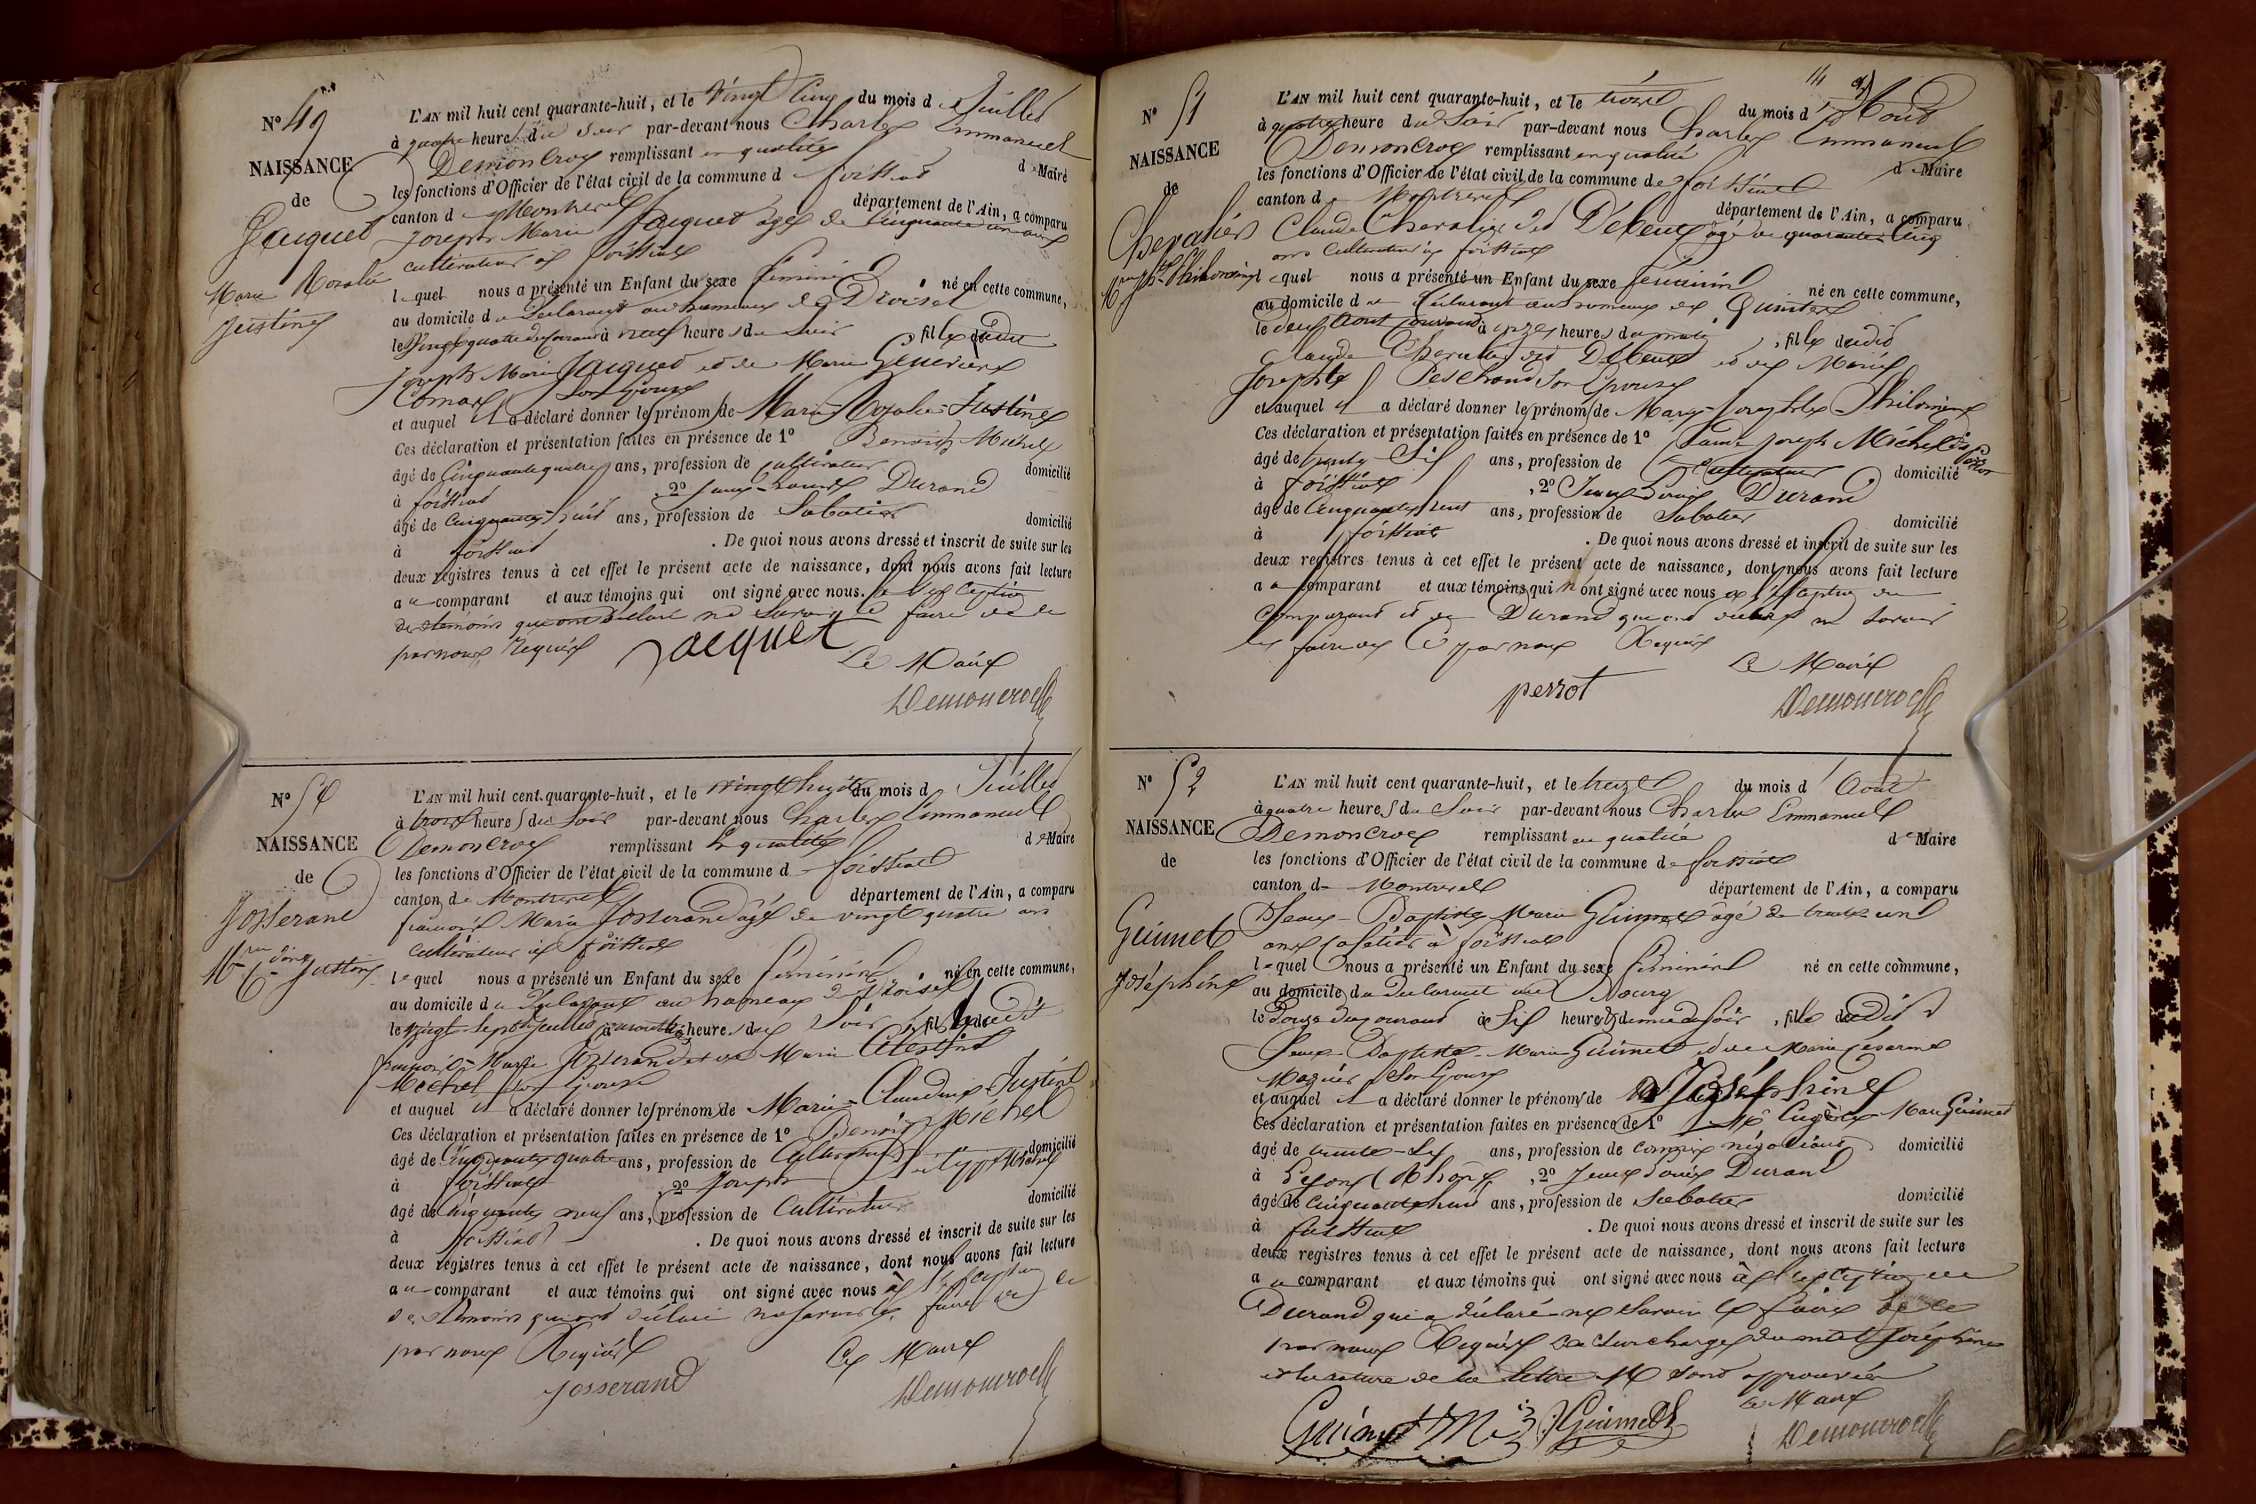 N° 49
NAISSANCE
de
Jacquet
Marie Rosalie
Justine
L'AN mil huit cent quarante-huit, et le vingt cinq du mois de Juillet
à quatre heures du soir par-devant nous Charles Emmanuel
Demoncroy remplissant en qualité de Maire
les fonctions d'Officier de l'état civil de la commune d foissiat
canton de Montrevel département de l'Ain, a comparu
Joseph Marie Jacquet âgé de cinquante un ans
cultivateur à foissiat
lequel nous a présenté un Enfant du sexe féminin né en cette commune,
au domicile du déclarant au hameau de
le vingt quatre du courant à neuf heures du soir, fille dudit
Joseph Marie Jacquet et de Marie Geneviève
son épouse
et auquel il a déclaré donner les prénoms de Marie Rosalie Justine
Ces déclaration et présentation faites en présence de 1° Benoit Michel
âgé de cinquante quatre ans, profession de cultivateur domicilié
à foissiat, 2° Jean-Louis Durand
âgé de cinquante huit ans, profession de Sabotier domicilié
à foissiat. De quoi nous avons dressé et inscrit de suite sur les
deux registres tenus à cet effet le présent acte de naissance, dont nous avons fait lecture
au comparant et aux témoins qui ont signé avec nous. à l'exception
des témoins qui ont déclaré ne savoir le faire de ce
par nous Requis
Jacquet
Le Maire
Demoncroy
N° 50
NAISSANCE
de
Josserand
Mrie Cdine Justine
L'AN mil huit cent quarante-huit, et le vingt huit du mois d Juillet
à trois heures du soir par-devant nous Charles Emmanuel
Demoncroy remplissant en qualité de Maire
les fonctions d'Officier de l'état civil de la commune d foissiat
canton de Montrevel département de l'Ain, a comparu
françois Marie Josserand âgé de vingt quatre ans
cultivateur à foissiat
lequel nous a présenté un Enfant du sexe féminin né en cette commune,
au domicile du déclarant au hameau
le vingt sept Juillet courant à heures du soir, fille dudit
françois-Marie Josserand et de Marie Célestine
Michel son épouse
et auquel il a déclaré donner les prénoms de Marie-Claudine Justine
Ces déclaration et présentation faites en présence de 1° Benoit Michel
âgé de cinquante quatre ans, profession de Cultivateur domicilié
à foissiat, 2° Joseph Philippe Michel
âgé de cinquante neuf ans, profession de Cultivateur domicilié
à foissiat. De quoi nous avons dressé et inscrit de suite sur les
deux registres tenus à cet effet le présent acte de naissance, dont nous avons fait lecture
au comparant et aux témoins qui ont signé avec nous à l'exception
des témoins qui ont déclaré ne savoir le faire de ce
par nous Requis
Le Maire
Josserand
Demoncroy
N° 51
NAISSANCE
de
Chevalier
Mrie Jphte Philomène
L'AN mil huit cent quarante-huit, et le trois du mois d'Août
à quatre heure du Soir par-devant nous Charles Emmanuel
Demoncroy remplissant en qualité de Maire
les fonctions d'Officier de l'état civil de la commune de foissiat
canton de Montrevel département de l'Ain, a comparu
Claude Chevalier dit Debeuf âgé de quarante cinq
ans cultivateur à foissiat
lequel nous a présenté un Enfant du sexe féminin né en cette commune,
au domicile du déclarant au hameau de
le deux Août courant à onze heures du matin, fille dudit
Claude Chevalier dit Debeuf et de Marie
Josephte son épouse
et auquel il a déclaré donner les prénoms de Marie-Josephte Philomène
Ces déclaration et présentation faites en présence de 1° Claude Joseph Michel dit Perrot
âgé de trente-six ans, profession de Cultivateur domicilié
à foissiat, 2° Jean Louis Durand
âgé de cinquante huit ans, profession de Sabotier domicilié
à foissiat. De quoi nous avons dressé et inscrit de suite sur les
deux registres tenus à cet effet le présent acte de naissance, dont nous avons fait lecture
au comparant et aux témoins qui ont signé avec nous à l'exception du
comparant et de Durand qui ont déclaré ne savoir
le faire de ce par nous Requis
Le Maire
perrot
Demoncroy
N° 52
NAISSANCE
de
Guimet
Joséphine
L'AN mil huit cent quarante-huit, et le treize du mois d'Août
à quatre heures du Soir par-devant nous Charles Emmanuel
Demoncroy remplissant en qualité de Maire
les fonctions d'Officier de l'état civil de la commune de foissiat
canton de Montrevel département de l'Ain, a comparu
Jean-Baptiste Marie Guimet âgé de trente un
ans à foissiat
lequel nous a présenté un Enfant du sexe féminin né en cette commune,
au domicile du déclarant au Bourg
le Douze du courant à Six heures & demie du soir, fille dudit
Jean-Baptiste-Marie Guimet et de Marie Césarine
son épouse
et auquel il a déclaré donner le prénom de Joséphine
Ces déclaration et présentation faites en présence de 1° Mr Eugène Marie Guimet
âgé de trente-six ans, profession de commis négociant domicilié
à Lyon (Rhône), 2° Jean Louis Durand
âgé de cinquante huit ans, profession de Sabotier domicilié
à foissiat. De quoi nous avons dressé et inscrit de suite sur les
deux registres tenus à cet effet le présent acte de naissance, dont nous avons fait lecture
au comparant et aux témoins qui ont signé avec nous à l'exception de
Durand qui a déclaré ne savoir le faire de ce
par nous Requis la surcharge du mot Joséphine
et la rature de la lettre M sont approuvées
Le Maire
Guimet Mie J. Guimet
Demoncroy